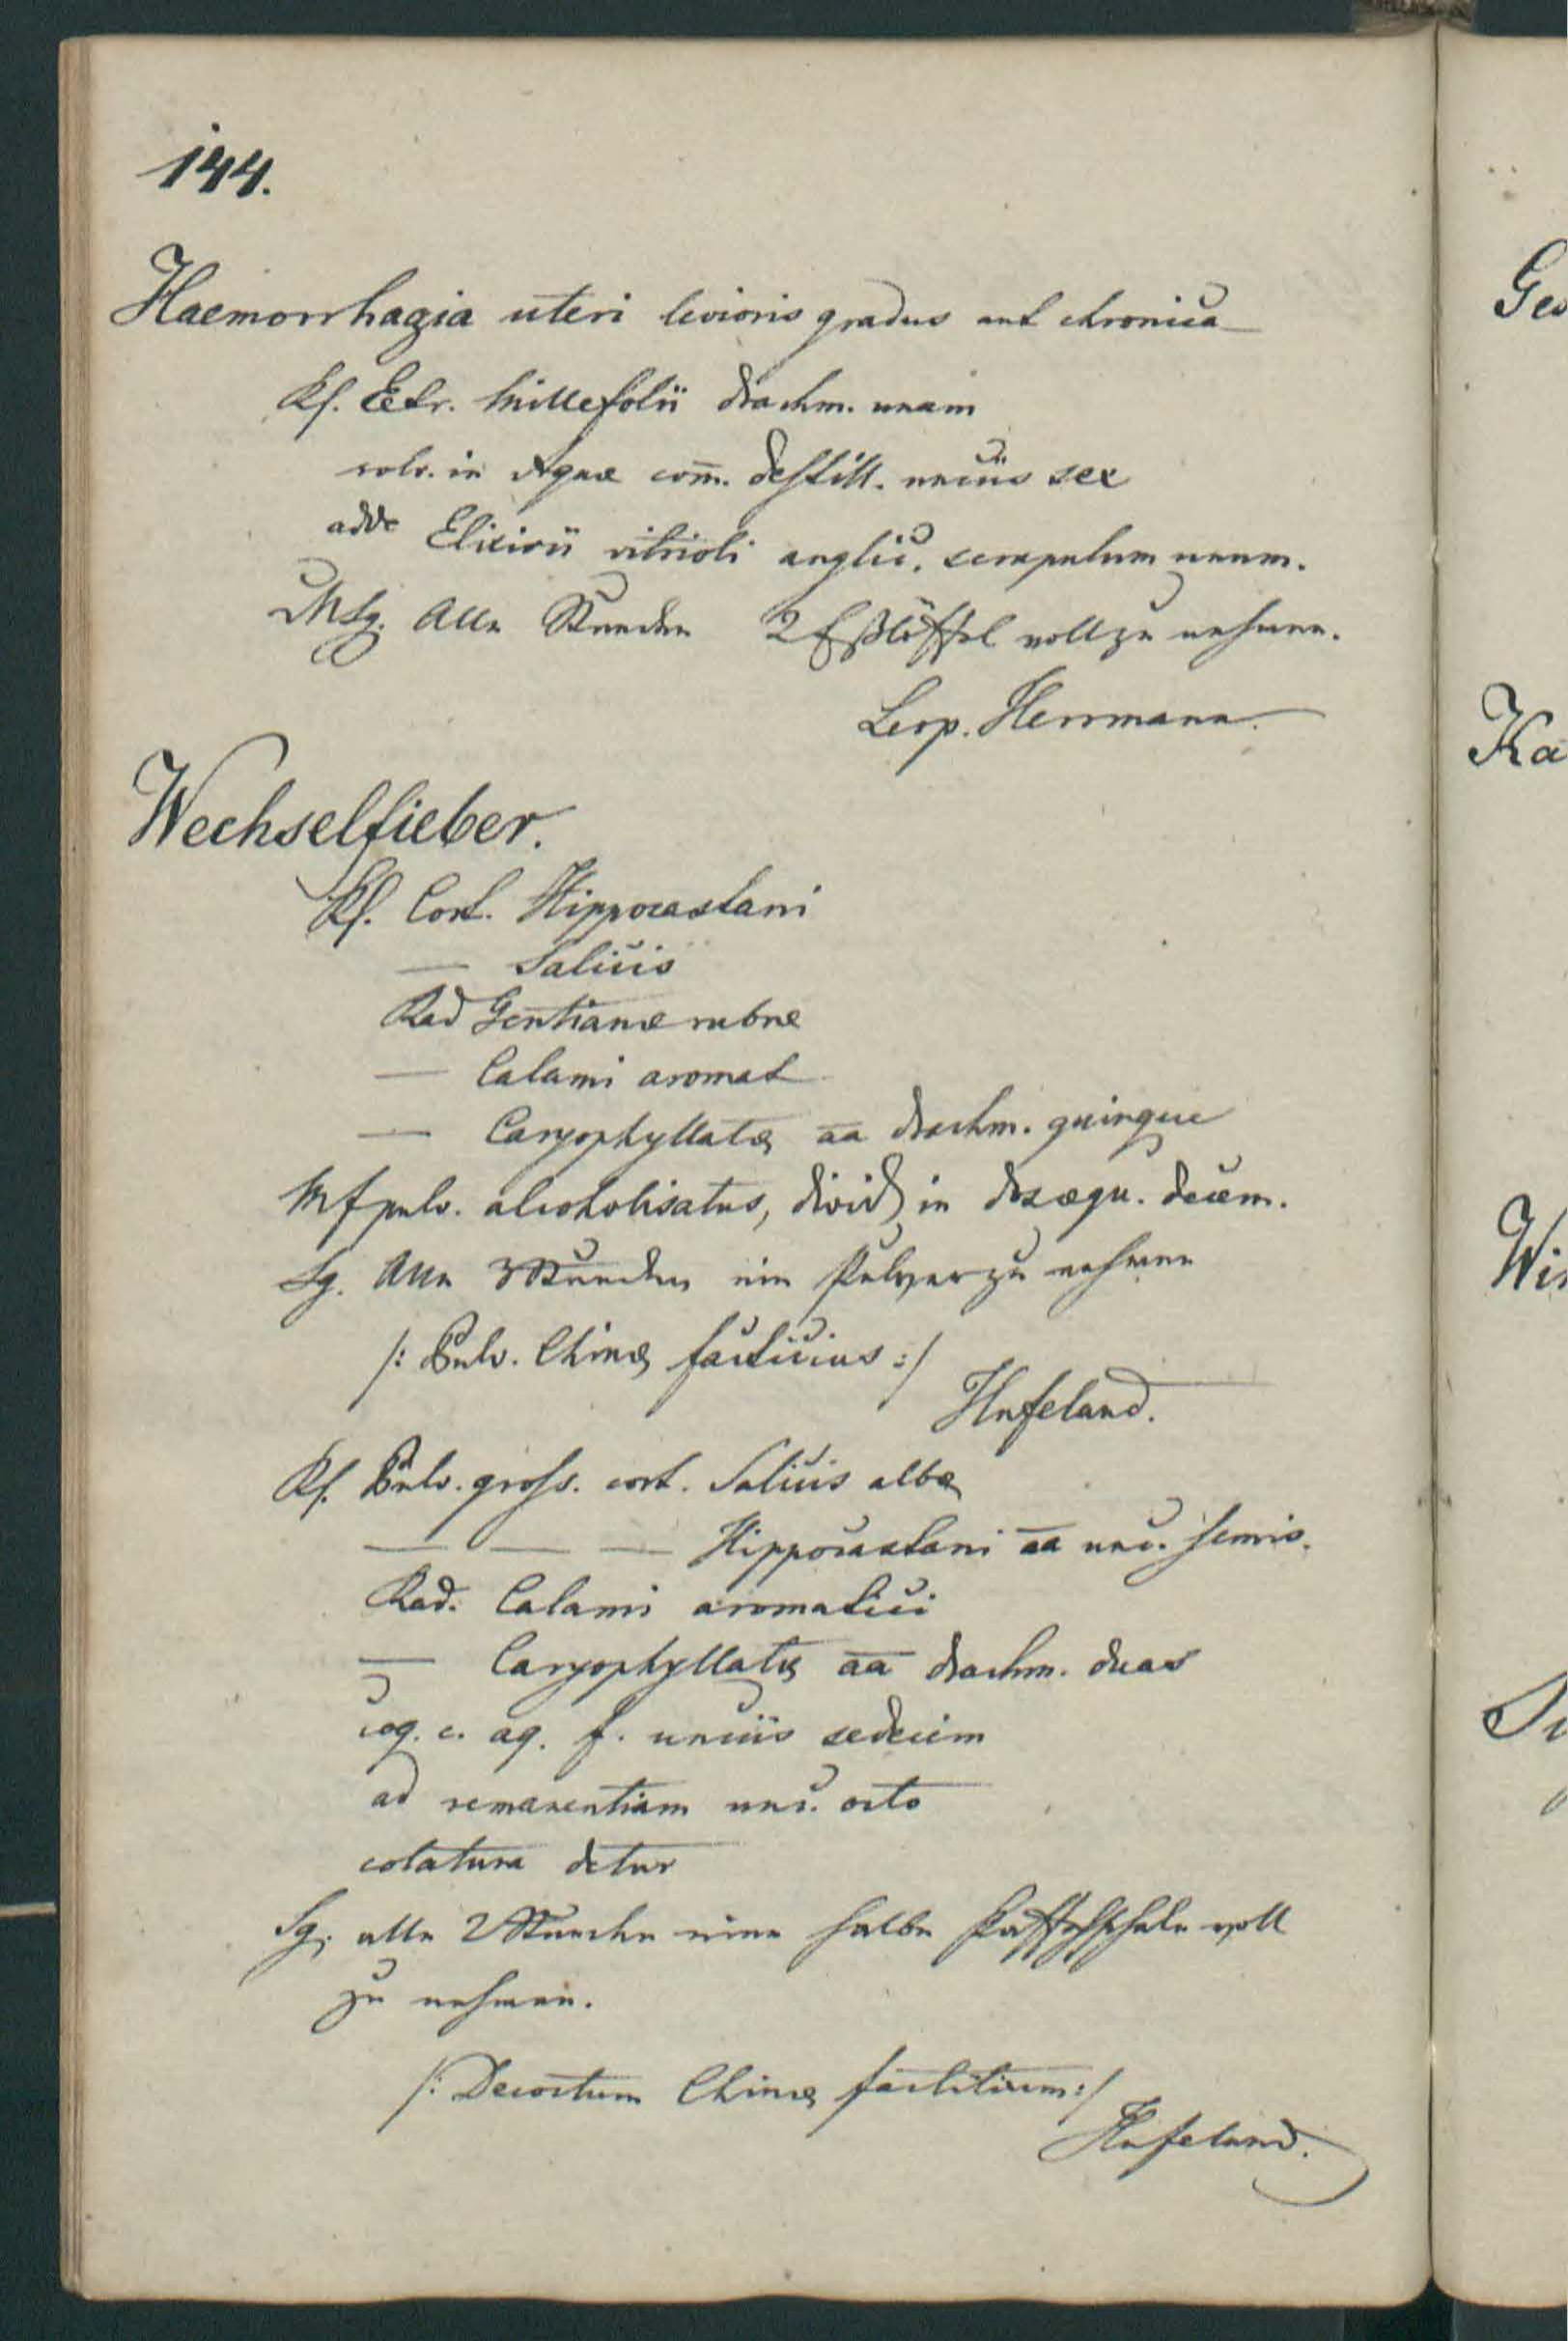 144.
Haemorrhagia uteri levioris gradus aut chronica
Rf. Extr. Millefolii drachm. unam
solv. in Aquae com̄. destill. unciis sex
adde Elixirii vitrioli anglic. scrupulum unum.
MSg. Alle Stunden 2 Eßlöffel voll zu nehmen.
Leop. Herrmann.
Wechselfieber.
Rf. Cort. Hippocastani
— Salicis
Rad Gentianae rubrae
— Calami aromat
— Caryophyllatae aa drachm. quinque
Mf pulv. alcoholisatus, divid in dos aequ. decem.
Sg. Alle 3 Stunden ein Pulver zu nehmen
/: Pulv. Chinae facticius :/
Hufeland.
Rf. Pulv. gross. cort. Salicis albae
— — — Hippocastani aa unc. semis.
Rad. Calami aromatici
— Caryophyllatae aa drachm. duas
coq. c. aq. f. unciis sedecim
ad remanentiam unc. octo
colatura detur
Sg. alle 2 Stunden eine halbe Kaffehschale voll
zu nehmen.
/: Decoctum Chinae factitium :/
Hufeland.
Ges
Ka
Wi